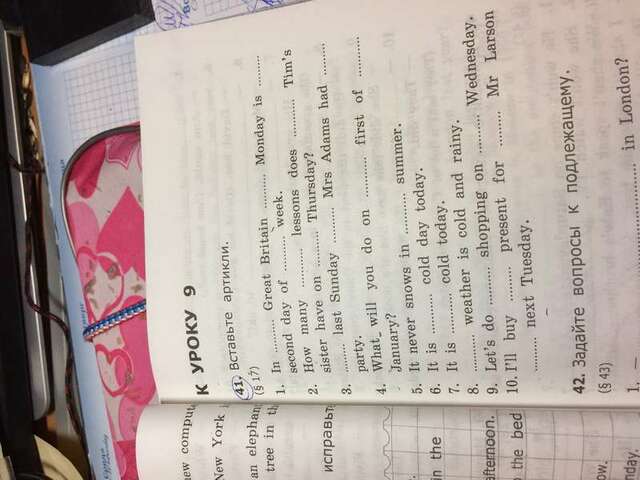 new comput
New York i
an elephan
tree in th
исправьт
in the
afternoon.
the bed
ow.
nday.
К УРОКУ 9
41. Вставьте артикли.
(§ 17)
1. In .......... Great Britain .......... Monday is ..........
second day of .......... week.
2. How many .......... lessons does .......... Tim's
sister have on .......... Thursday?
3. .......... last Sunday .......... Mrs Adams had ..........
party.
4. What will you do on .......... first of ..........
January?
5. It never snows in .......... summer.
6. It is .......... cold day today.
7. It is .......... cold today.
8. .......... weather is cold and rainy.
9. Let's do .......... shopping on .......... Wednesday.
10. I'll buy .......... present for .......... Mr Larson
.......... next Tuesday.
42. Задайте вопросы к подлежащему.
(§ 43)
1. — .......................... in London?